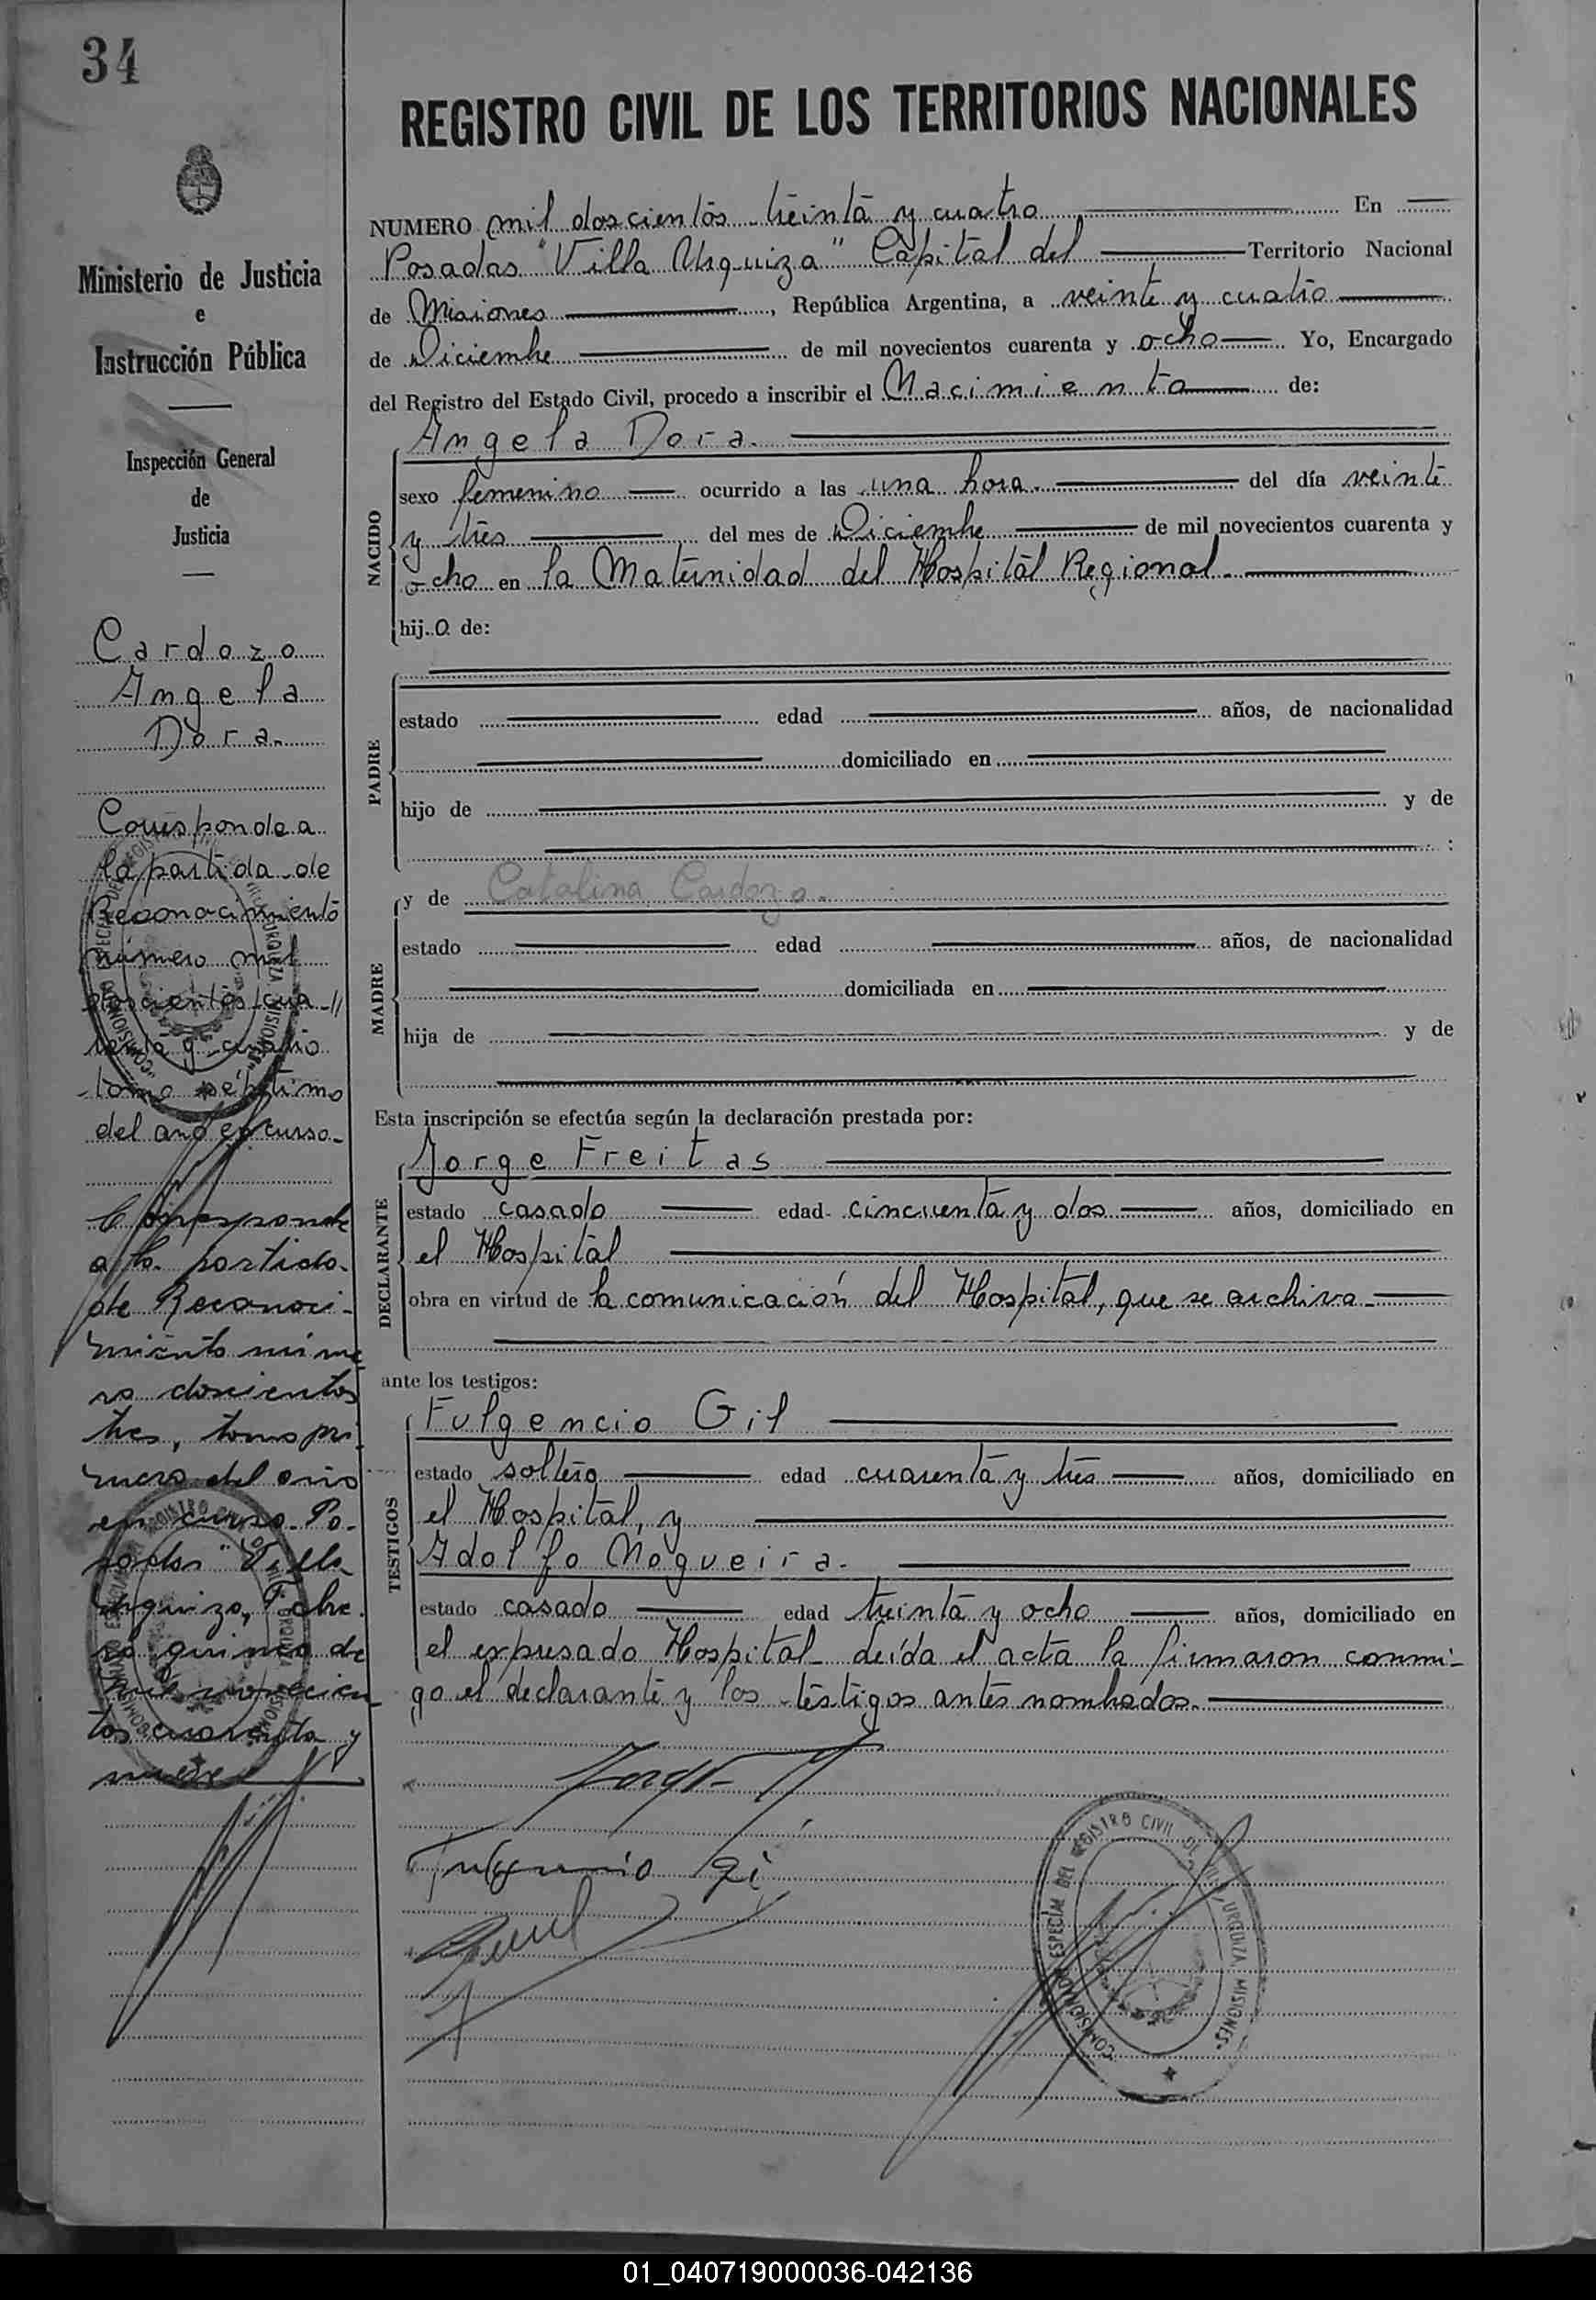 34
Ministerio de Justicia
e
Instrucción Pública
Inspección General
de
Justicia
Cardozo
Angela
Dora.
Corresponde a
la partida de
Reconocimiento
número mil
doscientos cua-//
renta y cuatro
tomo séptimo
del año en curso.
Corresponde
a la partida
de Reconoci-
miento núme
ro doscientos
tres, tomo pri
mero del año
en curso. Po-
sadas "Villa
Urquiza, Febre
ro quince de
mil novecien
tos cuarenta y
nueve
REGISTRO CIVIL DE LOS TERRITORIOS NACIONALES
NUMERO mil doscientos treinta y cuatro En
Posadas "Villa Urquiza" Capital del Territorio Nacional
de Misiones, República Argentina, a veinte y cuatro
de Diciembre de mil novecientos cuarenta y ocho Yo, Encargado
del Registro del Estado Civil, procedo a inscribir el Nacimiento de:
NACIDO
Angela Dora.
sexo femenino ocurrido a las una hora. del día veinte
y tres del mes de Diciembre de mil novecientos cuarenta y
ocho en la Maternidad del Hospital Regional.
hij a de:
PADRE
estado edad años, de nacionalidad
domiciliado en
hijo de y de
:
MADRE
y de Catalina Cardozo.
estado edad años, de nacionalidad
domiciliada en
hija de y de
Esta inscripción se efectúa según la declaración prestada por:
DECLARANTE
Jorge Freitas
estado casado edad cincuenta y dos años, domiciliado en
el Hospital
obra en virtud de la comunicación del Hospital, que se archiva.
ante los testigos:
TESTIGOS
Fulgencio Gil
estado soltero edad cuarenta y tres años, domiciliado en
el Hospital, y
Adolfo Nogueira.
estado casado edad treinta y ocho años, domiciliado en
el expresado Hospital- Leída el acta la firmaron conmi-
go el declarante y los testigos antes nombrados.
Fulgencio Gi
COMISIONADO ESPECIAL DEL REGISTRO CIVIL DE VILLA URQUIZA MISIONES
01_040719000036-042136